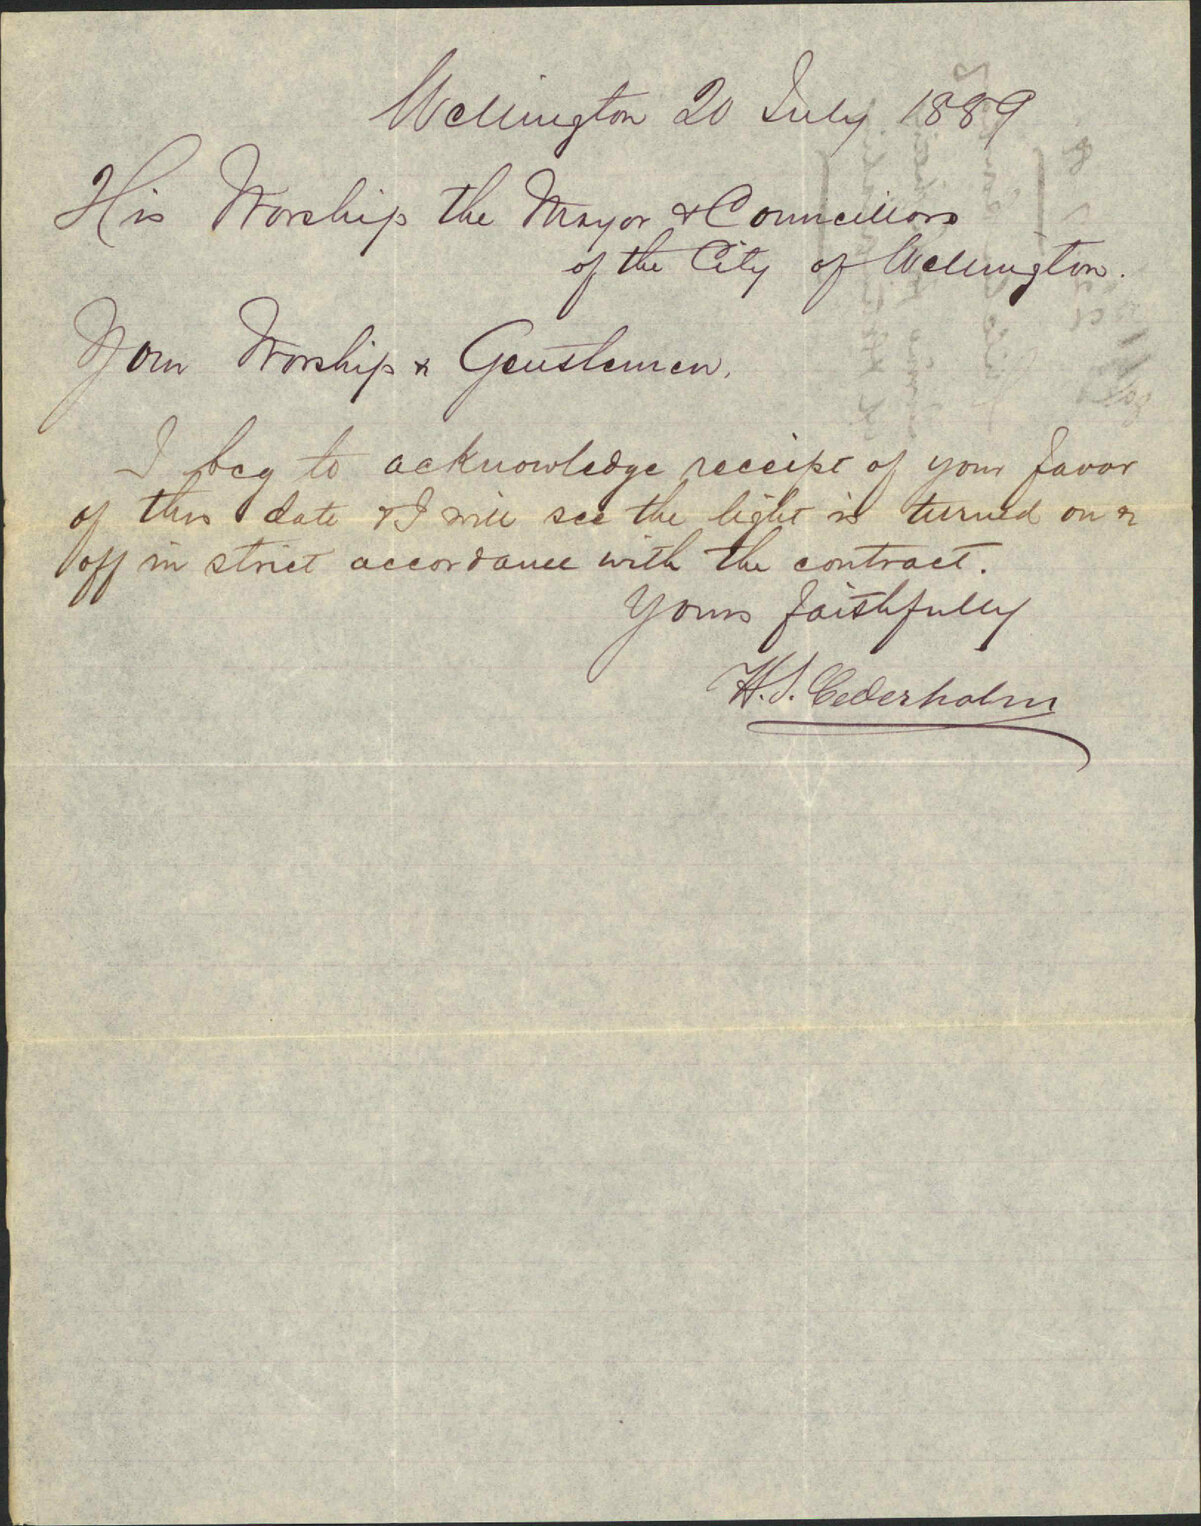 Wellington 20 July 1889
His Worship the Mayor & Councillors
of the City of Wellington.
Your Worship & Gentlemen,
I beg to acknowledge receipt of your favor
of this date & I will see the light is turned on &
off in strict accordance with the contract.
Yours faithfully
H. S. Cederholm